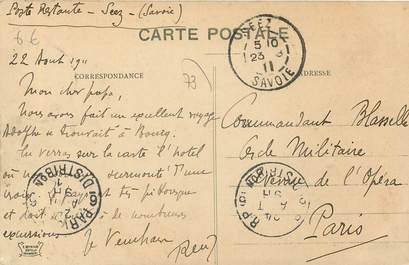 Poste Restante - Seez - (Savoie)
6€
CARTE POSTALE
SEEZ
5 10
23 8
11
SAVOIE
22 Aout 1911
CORRESPONDANCE
ADRESSE
73
Mon cher papa,
Nous avons fait un excellent voyage
Adolphe se trouvait à Bourg.
Tu verras sur la carte l'hotel
où nous surmonté d'une
croix. Le pays est très pittoresque
et doit de nombreuses
excursions. Je t'embrasse
René
Commandant Blasselle
Cercle Militaire
Avenue de l'Opéra
Paris
PARIS
DISTRIBON
PARIS
DISTRIBON